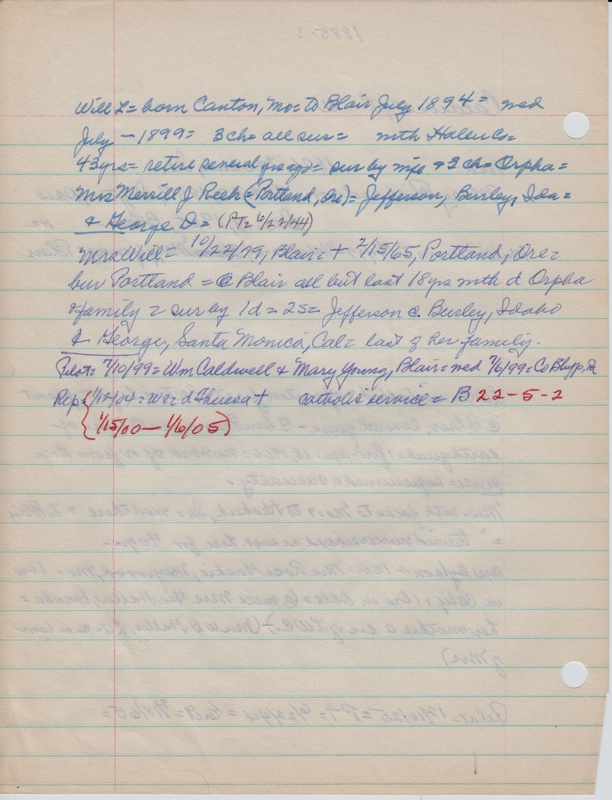 Will L = born Canton, Mo = to Blair July 1894 = med
July - 1899 = 3 ch = all sur = with Haller Co =
43 yrs = retire several yrs ago = sur by wife + 3 ch = Orpha =
Mrs Merrill J Reeh (Portland, Ore) = Jefferson, Burley, Ida =
+ George D = (PT = 6/22/44)
Mrs Will = 10/22/79, Blair = + 2/15/65, Portland, Ore =
bur Portland = @ Blair all but last 18 yrs with d Orpha
+ family = sur by 1 d = 2 s = Jefferson @ Burley, Idaho
+ George, Santa Monica, Cal = last of her family.
Pilot = 7/10/99 = Wm Caldwell + Mary Young, Blair = med 7/6/99 = Co Blfs, Ia
Rep (1/12/04 = W = d Theresa + catholic service = B 22-5-2
(1/15/00 - 1/6/05)